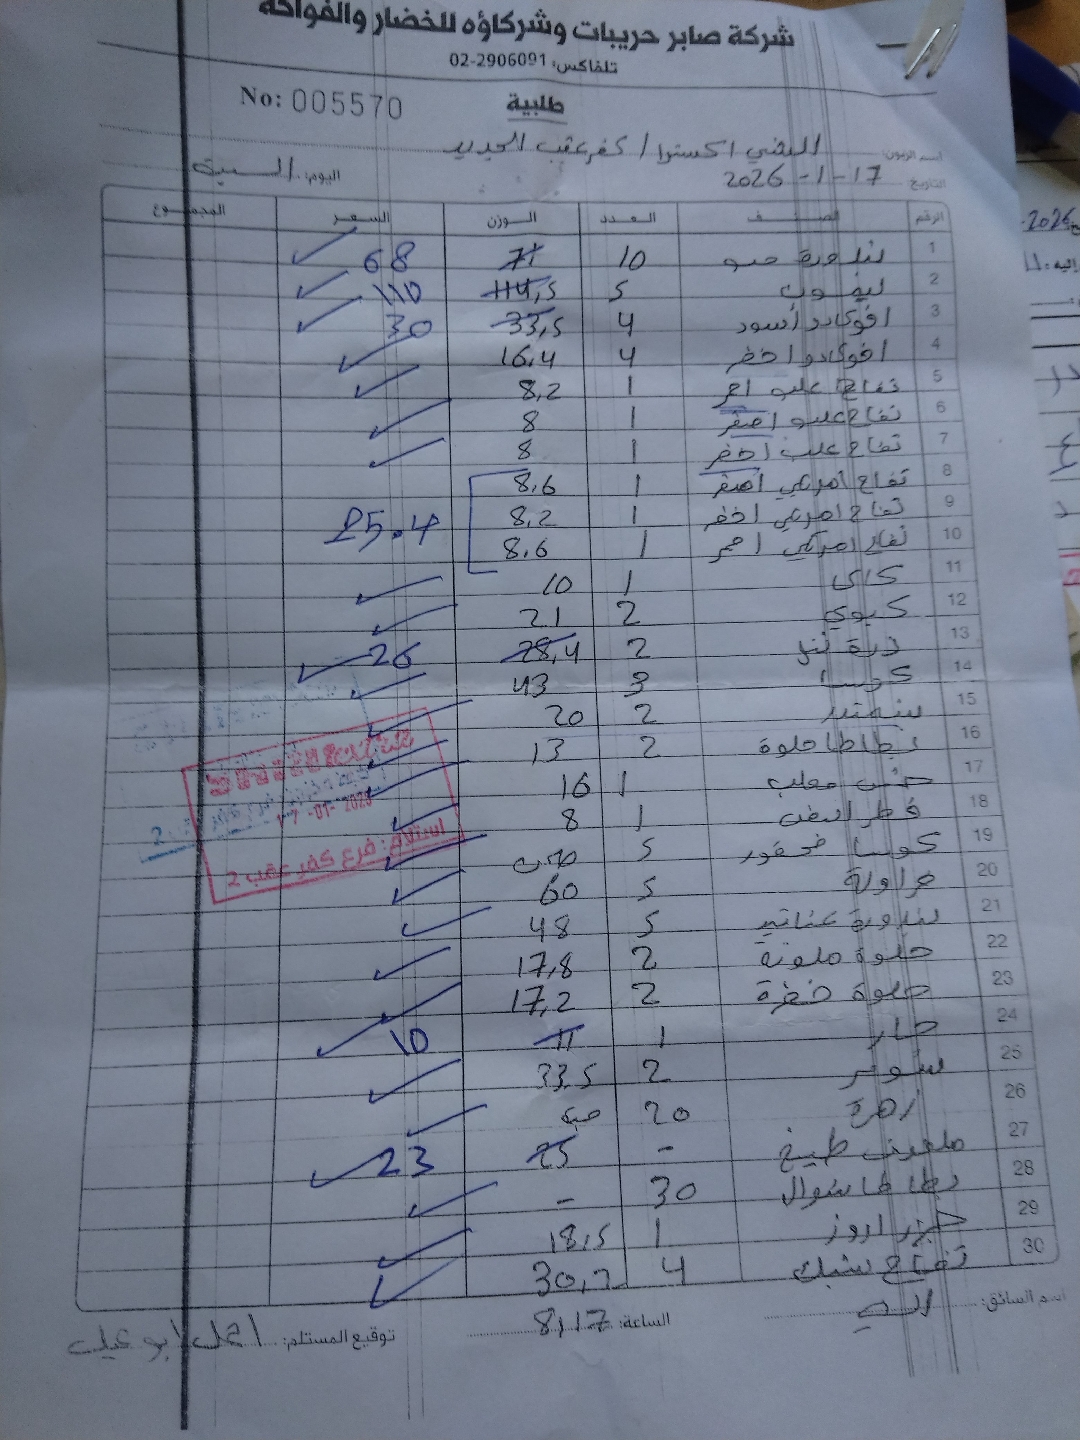 شركة صابر حريبات وشركاؤه للخضار والفواكة
تلفاكس: 02-2906091
No: 005570
طلبية
اسم الزبون: اكسترا / كفر عقب الجديد
التاريخ: 17-1-2026 اليوم: السبت
الرقم الصنف العدد الوزن السعر المجموع
1 بندورة حبو 10 71 68
2 ليمون 5 114,5 110
3 افوكادو أسود 4 33,5 30
4 افوكادو اخضر 4 16,4
5 تفاح علب احمر 1 8,2
6 تفاح علب اصفر 1 8
7 تفاح علب اخضر 1 8
8 تفاح امركي اصفر 1 8,6
9 تفاح امركي اخضر 1 8,2 25.4
10 تفاح امركي احمر 1 8,6
11 كاكا 1 10
12 كيوي 2 21
13 ذرة 2 28,4 26
14 كوسا 3 43
15 شمندر 2 20
16 بطاطا حلوة 2 13
17 معلب 1 16
18 فطر ابيض 1 8
19 كوسا محفور 5
20 فراولة 5 60
21 بندورة عناقيد 5 48
22 حلوة ملونة 2 17,8
23 حلوة خضرة 2 17,2
24 حار 1 11 10
25 شومر 2 33,5
26 زهرة 20 حبة
27 ملفوف طبيخ - 25 23
28 بطاطا شوال 30 -
29 جزر اروز 1 18,5
30 تفاح شبك 4 30,2
اسم السائق: الساعة: 8,17 توقيع المستلم:
17-01-2026
استلام: فرع كفر عقب 2